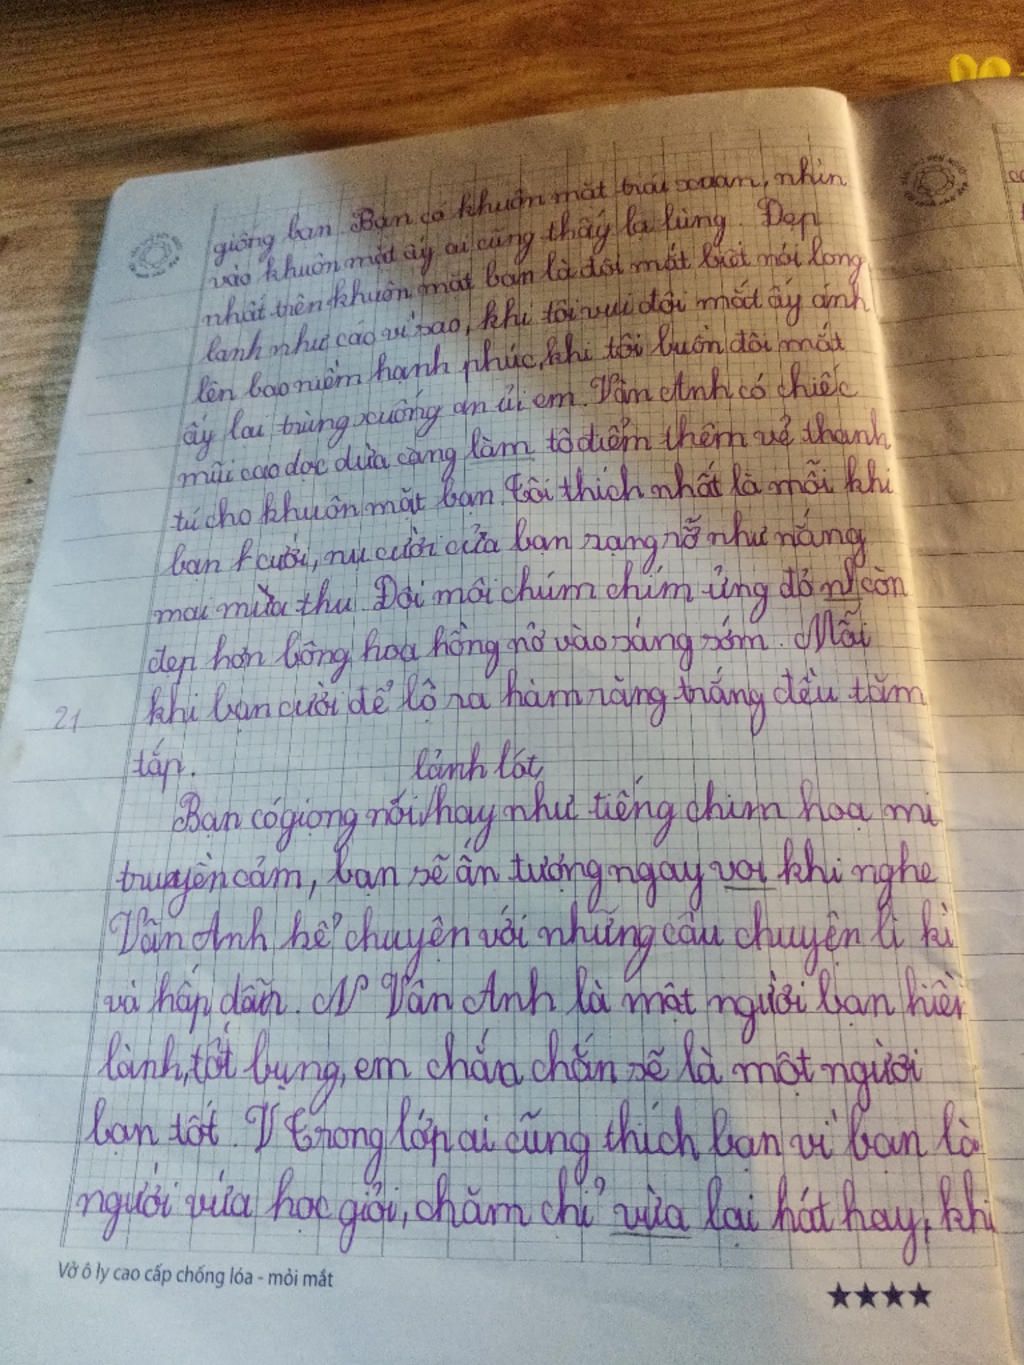 giống bạn. Bạn có khuôn mặt trái xoan, nhìn
vào khuôn mặt ấy ai cũng thấy lạ lùng. Đẹp
nhất trên khuôn mặt bạn là đôi mắt biết nói long
lanh như các vì sao, khi tôi vui đôi mắt ấy ánh
lên bao niềm hạnh phúc, khi tôi buồn đôi mắt
ấy lại trùng xuống an ủi em. Vân Anh có chiếc
mũi cao dọc dừa càng làm tô điểm thêm vẻ thanh
tú cho khuôn mặt bạn. Tôi thích nhất là mỗi khi
bạn cười, nụ cười của bạn rạng rỡ như nắng
mai mùa thu. Đôi môi chúm chím ửng đỏ còn
đẹp hơn bông hoa hồng nở vào sáng sớm. Mỗi
khi bạn cười để lộ ra hàm răng trắng đều tăm
21
tắp.
lảnh lót,
Bạn có giọng nói hay như tiếng chim hoạ mi
truyền cảm, bạn sẽ ấn tượng ngay vơi khi nghe
Vân Anh kể chuyện với những câu chuyện li kì
và hấp dẫn. Vân Anh là một người bạn hiền
lành, tốt bụng, em chắn chắn sẽ là một người
bạn tốt. Trong lớp ai cũng thích bạn vì bạn là
người vừa học giỏi, chăm chỉ vừa lại hát hay, khi
Vở ô ly cao cấp chống lóa - mỏi mắt